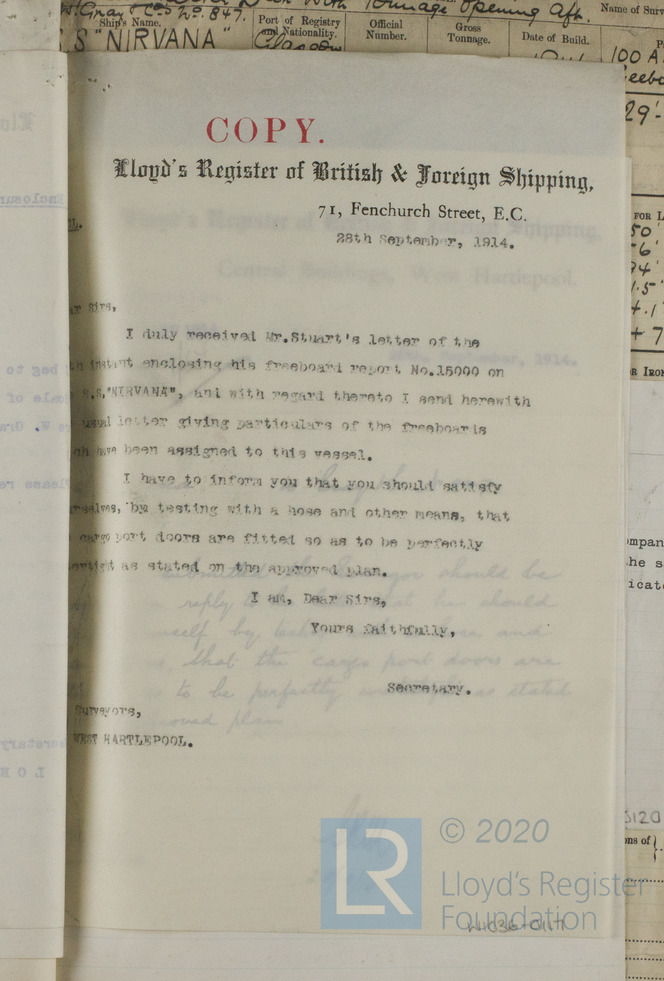 W. Gray & Co No 847.
Tonnage Opening Aft.
Name of Surv
Ship's Name.
Port of Registry
and Nationality.
Official
Number.
Gross
Tonnage.
Date of Build.
S "NIRVANA"
Glasgow
100 A
29'
COPY.
Lloyd's Register of British & Foreign Shipping,
71, Fenchurch Street, E.C.
28th September, 1914.
ar Sirs,
I duly received Mr.Stuart's letter of the
th instant enclosing his freeboard report No.15000 on
S.S."NIRVANA", and with regard thereto I send herewith
usual letter giving particulars of the freeboards
ch have been assigned to this vessel.
I have to inform you that you should satisfy
rselves, by testing with a hose and other means, that
cargo port doors are fitted so as to be perfectly
ertight as stated on the approved plan.
I am, Dear Sirs,
Yours faithfully,
Secretary.
Surveyors,
WEST HARTLEPOOL.
FOR L
mpan
he s
icate
© 2020
LR
Lloyd's Register
Foundation